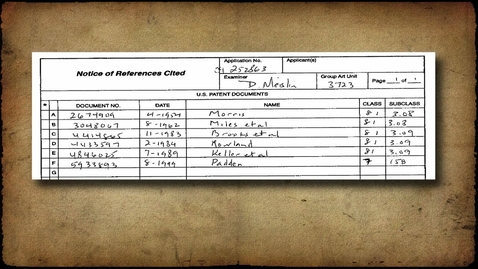 Notice of References Cited
Application No.
252863
Applicant(s)
Examiner
D. Meislin
Group Art Unit
3723
Page 1 of 1
U.S. PATENT DOCUMENTS
* DOCUMENT NO. DATE NAME CLASS SUBCLASS
A 2674909 4-1954 Morris 81 3.05
B 3048067 8-1962 Miles et al 81 3.08
C 11-1983 Brooks et al 81 3.09
D 4433597 2-1984 Rowland 81 3.09
E 4846025 7-1989 Keller et al 81 3.09
F 5933893 8-1999 Padden 7 158
G